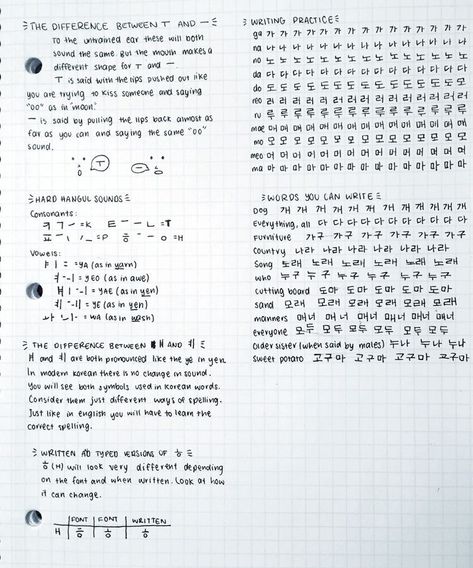 THE DIFFERENCE BETWEEN ㅜ AND ㅡ
To the untrained ear these will both
sound the same. But the mouth makes a
different shape for ㅜ and ㅡ.
ㅜ is said with the lips pushed out like
you are trying to kiss someone and saying
"oo" as in "moon".
ㅡ is said by pulling the lips back almost as
far as you can and saying the same "oo"
sound.
ㅜ ㅡ
HARD HANGUL SOUNDS
Consonants:
ㅋ ㄱ ㅡ = K ㅌ ㅡ ㅡ ㄴ = T
ㅍ = P ㅎ ㅡ ㅡ ㅇ = H
Vowels:
ㅑ = YA (as in yarn)
ㅕ = YEO (as in awe)
ㅒ = YAE (as in yen)
ㅖ = YE (as in yen)
ㅘ = WA (as in wash)
THE DIFFERENCE BETWEEN ㅒ AND ㅖ
ㅒ and ㅖ are both pronounced like the ye in yen.
In modern korean there is no change in sound.
You will see both symbols used in Korean words.
Consider them just different ways of spelling.
Just like in english you will have to learn the
correct spelling.
WRITTEN AD TYPED VERSIONS OF ㅎ
ㅎ (H) will look very different depending
on the font and when written. Look at how
it can change.
FONT FONT WRITTEN
H ㅎ ㅎ ㅎ
WRITING PRACTICE
ga 가 가 가 가 가 가 가 가 가 가 가 가 가 가
na 나 나 나 나 나 나 나 나 나 나 나 나 나 나
no 노 노 노 노 노 노 노 노 노 노 노 노 노 노
da 다 다 다 다 다 다 다 다 다 다 다 다 다 다
do 도 도 도 도 도 도 도 도 도 도 도 도 도 도
reo 러 러 러 러 러 러 러 러 러 러 러 러 러 러
ru 루 루 루 루 루 루 루 루 루 루 루 루 루 루
mae 매 매 매 매 매 매 매 매 매 매 매 매 매 매
mo 모 모 모 모 모 모 모 모 모 모 모 모 모 모
meo 머 머 머 머 머 머 머 머 머 머 머 머 머 머
ma 마 마 마 마 마 마 마 마 마 마 마 마 마 마
WORDS YOU CAN WRITE
Dog 개 개 개 개 개 개 개 개 개 개 개 개
Everything, all 다 다 다 다 다 다 다 다 다 다
Furniture 가구 가구 가구 가구 가구 가구
Country 나라 나라 나라 나라 나라
Song 노래 노래 노래 노래 노래
who 누구 누구 누구 누구 누구
cutting board 도마 도마 도마 도마
sand 모래 모래 모래 모래 모래
manners 매너 매너 매너 매너 매너
everyone 모두 모두 모두 모두 모두
Older sister (when said by males) 누나 누나 누나
sweet potato 고구마 고구마 고구마 고구마